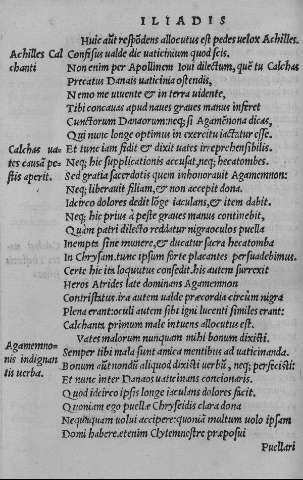 ILIADIS
Huic aūt respōdens allocutus est pedes uelox Achilles.
Achilles Cal
chanti
Confisus ualde dic uaticinium quod scis.
Non enim per Apollinem Ioui dilectum, quē tu Calchas
Precatus Danais uaticinia ostendis,
Nemo me uiuente & in terra uidente,
Tibi concauas apud naues graues manus inferet
Cunctorum Danaorum: neq; si Agamēnona dicas,
Qui nunc longe optimus in exercitu iactatur esse.
Calchas ua-
tes causā pe
stis aperit.
Et tunc iam fidit & dixit uates irreprehensibilis.
Neq; hic supplicationis accusat, neq; hecatombes.
Sed gratia sacerdotis quem inhonorauit Agamemnon:
Neq; liberauit filiam, & non accepit dona.
Idcirco dolores dedit lōge iaculans, & item dabit.
Neq; hic prius à peste graues manus continebit,
Quàm patri dilecto reddatur nigraoculos puella
Inempta sine munere, & ducatur sacra hecatomba
In Chrysam. tunc ipsum forte placantes persuadebimus.
Certe hic ita loquutus consedit. his autem surrexit
Heros Atrides late dominans Agamemnon
Contristatus. ira autem ualde præcordia circùm nigra
Plena erant: oculi autem sibi igni lucenti similes erant:
Calchanta primum male intuens allocutus est.
Agamemno-
nis indignan
tis uerba.
Vates malorum nunquam mihi bonum dixisti.
Semper tibi mala sunt amica mentibus ad uaticinanda.
Bonum aūt nondū aliquod dixisti uerbū, neq; perfecisti:
Et nunc inter Danaos uaticinans concionaris.
Quod idcirco ipsis longe iaculans dolores facit,
Quoniam ego puellæ Chryseidis clara dona
Nequaquam uolui accipere: quoniā multum uolo ipsam
Domi habere. etenim Clytemnestræ præposui
Puellari